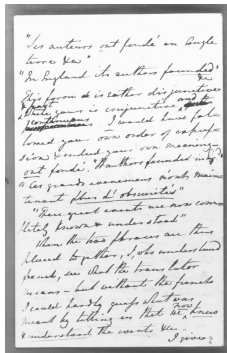 "Les auteurs ont fondé en Angle
terre &c"
"In England its authors founded"
&c
This form is rather disjunctive
& yours is conjunctive and
continuous. I would have fol
lowed your own order of
& rendered your own meaning
ont fondé. "Authors founded in"
"Les grands événements
tenant plus d'obscurités"
"These great events are now com
pletely known & understood"
When the two phrases are thus
placed together, I, who understand
french, see what the translator
means - but without the french
I could hardly guess what was
meant by telling us that we now knew
& understood the events &c.
I given?